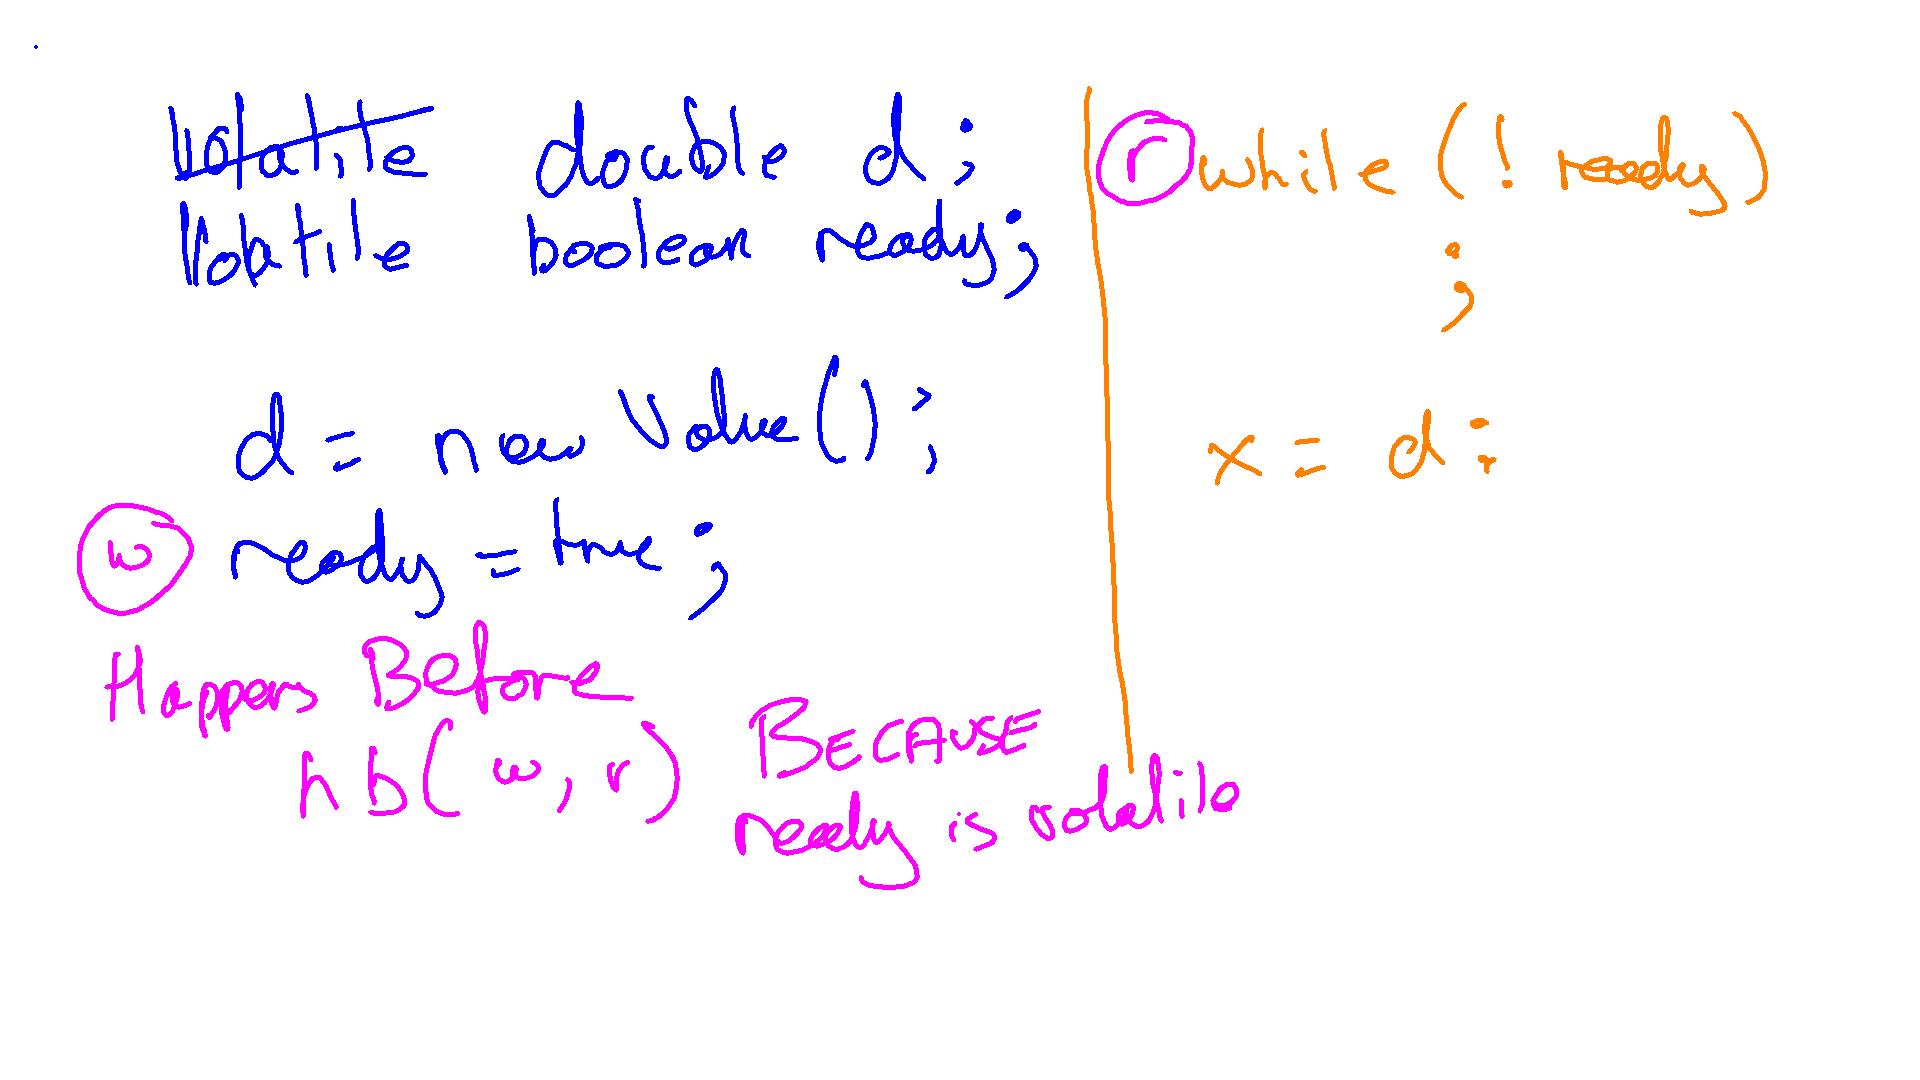 Volatile double d;
Volatile boolean ready;
d = new Value();
w ready = true;
Happens Before
hb(w, r) BECAUSE
ready is volatile
r while (! ready)
;
x = d;